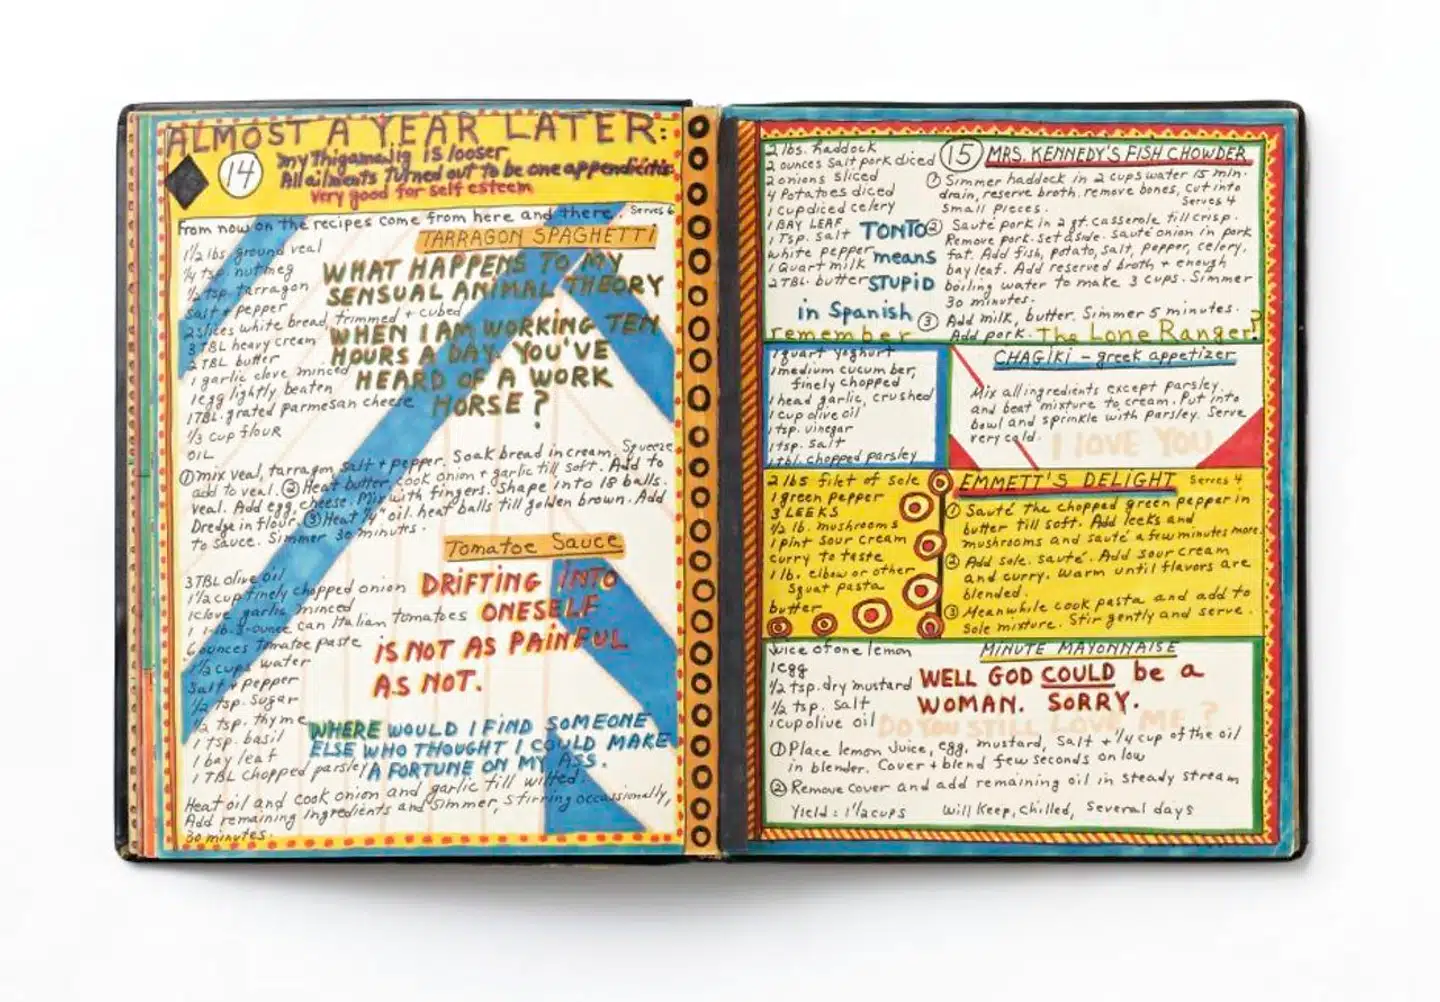 ALMOST A YEAR LATER:
14
my Thigamajig is looser
All ailments Turned out to be one appendicitis
very good for self esteem
From now on the recipes come from here and there. Serves 6
TARRAGON SPAGHETTI
1½ lbs ground veal
¼ tsp. nutmeg
½ tsp. tarragon
Salt + pepper
2 slices white bread, trimmed + cubed
3 TBL heavy cream
2 TBL butter
1 garlic clove minced
1 egg lightly beaten
1 TBL. grated parmesan cheese
⅓ cup flour
OIL
WHAT HAPPENS TO MY
SENSUAL ANIMAL THEORY
WHEN I AM WORKING TEN
HOURS A DAY. YOU'VE
HEARD OF A WORK
HORSE?
① mix veal, tarragon salt + pepper. Soak bread in cream. Squeeze
add to veal. ② Heat butter, cook onion + garlic till soft. Add to
veal. Add egg, cheese. Mix with fingers. Shape into 18 balls.
Dredge in flour. ③ Heat ¼" oil. heat balls till golden brown. Add
to sauce. Simmer 30 minutes.
Tomatoe Sauce
3 TBL olive oil
1½ cup finely chopped onion
1 clove garlic minced
1 1-lb. 3-ounce can Italian tomatoes
6 ounces Tomatoe paste
1½ cups water
Salt + pepper
½ tsp. sugar
½ tsp. thyme
1 tsp. basil
1 bay leaf
1 TBL chopped parsley
DRIFTING INTO
ONESELF
IS NOT AS PAINFUL
AS NOT.
WHERE WOULD I FIND SOMEONE
ELSE WHO THOUGHT I COULD MAKE
A FORTUNE ON MY ASS.
Heat oil and cook onion and garlic till wilted.
Add remaining ingredients and simmer, stirring occassionally,
30 minutes.
2 lbs. haddock
2 ounces salt pork diced
2 onions sliced
4 Potatoes diced
1 cup diced celery
1 BAY LEAF
1 Tsp. salt
white pepper
1 Quart milk
2 TBL. butter
TONTO
means
STUPID
in Spanish
remember
The Lone Ranger?
15 MRS. KENNEDY'S FISH CHOWDER
① Simmer haddock in 2 cups water 15 min.
drain, reserve broth. remove bones, cut into
small pieces.
Serves 4
② Sauté pork in 2 qt. casserole till crisp.
Remove pork. Set aside. sauté onion in pork
fat. Add fish, potato, salt, pepper, celery,
bay leaf. Add reserved broth + enough
boiling water to make 3 cups. Simmer
30 minutes.
③ Add milk, butter. Simmer 5 minutes.
Add pork.
1 quart yoghurt
1 medium cucumber,
finely chopped
1 head garlic, crushed
1 cup olive oil
1 tsp. vinegar
1 tsp. salt
1 tbl. chopped parsley
CHAGIKI - greek appetizer
Mix all ingredients except parsley.
and beat mixture to cream. Put into
bowl and sprinkle with parsley. Serve
very cold.
I LOVE YOU
2 lbs filet of sole
1 green pepper
3 LEEKS
½ lb. mushrooms
1 pint sour cream
curry to taste
1 lb. elbow or other
squat pasta
butter
EMMETT'S DELIGHT Serves 4
① Sauté the chopped green pepper in
butter till soft. Add leeks and
mushrooms and sauté a few minutes more.
② Add sole. sauté. Add sour cream
and curry. Warm until flavors are
blended.
③ Meanwhile cook pasta and add to
sole mixture. Stir gently and serve.
Juice of one lemon
1 egg
½ tsp. dry mustard
½ tsp. salt
1 cup olive oil
MINUTE MAYONNAISE
WELL GOD COULD be a
WOMAN. SORRY.
DO YOU STILL LOVE ME?
① Place lemon juice, egg, mustard, salt + ¼ cup of the oil
in blender. Cover + blend few seconds on low
② Remove cover and add remaining oil in steady stream
Yield: 1½ cups Will Keep, chilled, several days